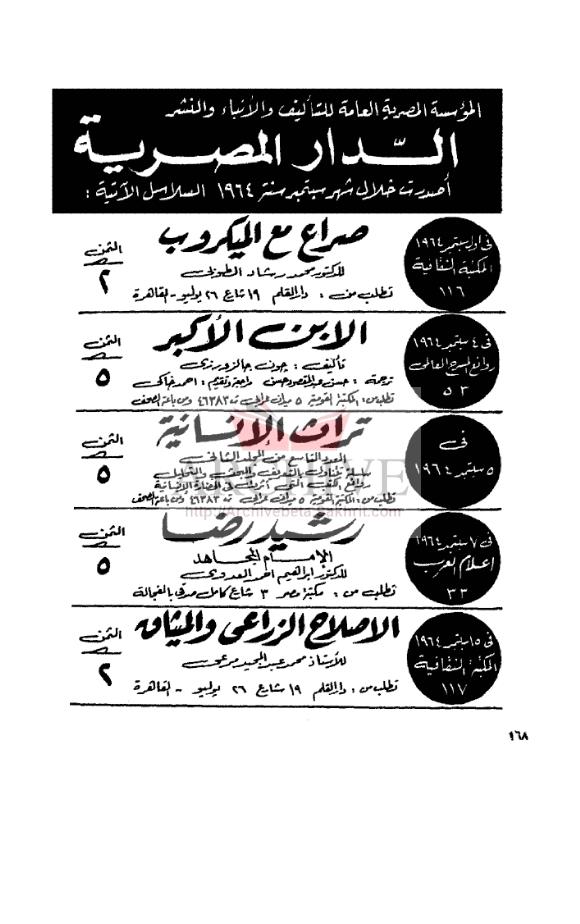 المؤسسة المصرية العامة للتأليف والأنباء والنشر
الدار المصرية
أصدرت خلال شهر سبتمبر سنة ١٩٦٤ السلاسل الآتية :
فى أول سبتمبر ١٩٦٤
المكتبة الثقافية
١١٦
صراع مع الميكروب
للدكتور محمد رشاد الطوبى
تطلب من : دار القلم ١٩ شارع ٢٦ يوليو - القاهرة
الثمن
٢
فى ٤ سبتمبر ١٩٦٤
روائع المسرح العالمى
٥٣
الابن الأكبر
تأليف : جون جالزورزى
ترجمة : حسن عبد المقصود حسن مراجعة وتقديم : احمد خاكى
تطلب من : المكتبة القومية ٥ ميدان عرابى ت ٤٦٣٨٣ ومن باعة الصحف
الثمن
٥
فى
٥ سبتمبر ١٩٦٤
تراث الإنسانية
العدد التاسع من المجلد الثانى
سلسلة تتناول بالتعريف والبحث والتحليل
روائع الكتب التى أثرت فى الحضارة الإنسانية
تطلب من : المكتبة القومية ٥ ميدان عرابى ت ٤٦٣٨٣ ومن باعة الصحف
الثمن
٥
ARCHIVE
http://Archivebeta.Sakhrit.com
فى ٧ سبتمبر ١٩٦٤
أعلام العرب
٣٣
رشيد رضا
الإمام المجاهد
للدكتور ابراهيم احمد العدوى
تطلب من : مكتبة مصر ٣ شارع كامل صدقى بالفجالة
الثمن
٥
فى ١٥ سبتمبر ١٩٦٤
المكتبة الثقافية
١١٧
الاصلاح الزراعى والميثاق
للأستاذ محمد عبد المجيد مرعى
تطلب من : دار القلم ١٩ شارع ٢٦ يوليو - القاهرة
الثمن
٢
٤٦٨